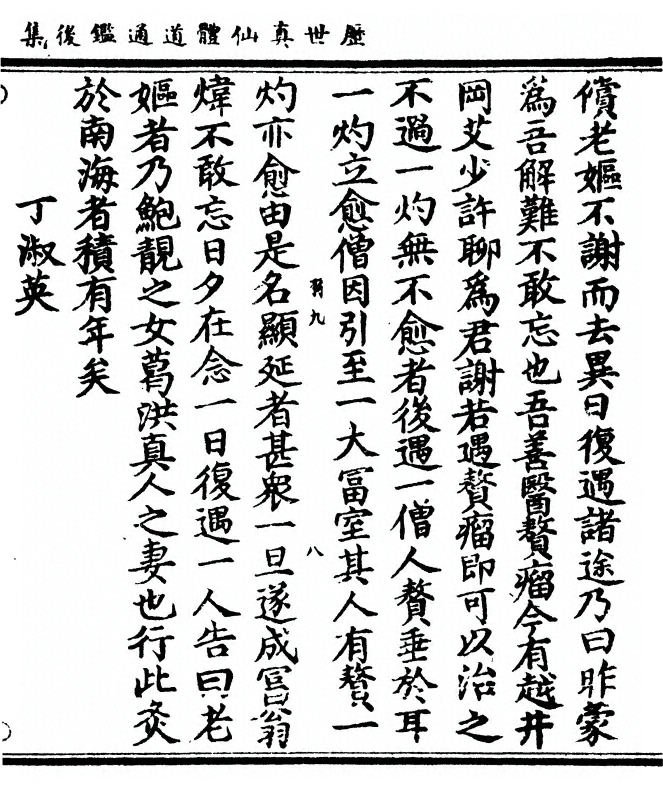 歷世真仙體道通鑑後集
償老嫗不謝而去異日復遇諸途乃曰昨蒙
為吾解難不敢忘也吾善醫贅瘤今有越井
岡艾少許聊為君謝若遇贅瘤即可以治之
不過一灼無不愈者後遇一僧人贅垂於耳
一灼立愈僧因引至一大冨室其人有贅一
羽九
八
灼亦愈由是名顯延者甚衆一旦遂成冨翁
煒不敢忘日夕在念一日復遇一人告曰老
嫗者乃鮑靚之女葛洪真人之妻也行此灸
於南海者積有年矣
丁淑英